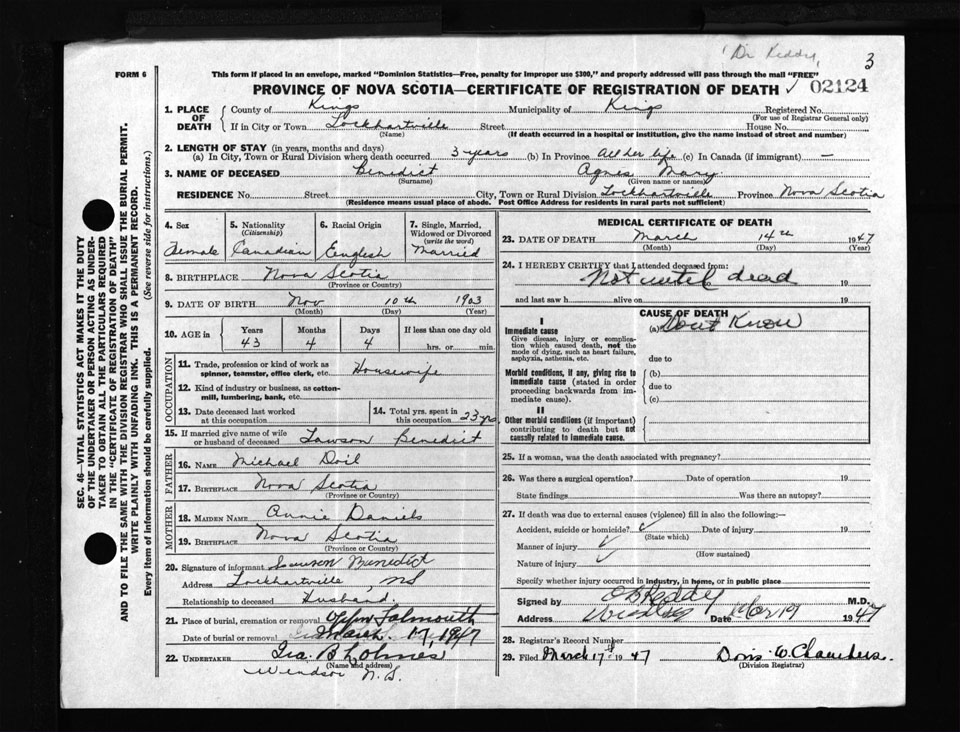 Dr Reddy, 3
FORM 6
This form if placed in an envelope, marked "Dominion Statistics—Free, penalty for improper use $300," and properly addressed will pass through the mail "FREE"
PROVINCE OF NOVA SCOTIA—CERTIFICATE OF REGISTRATION OF DEATH ✓ 02124
1. PLACE OF DEATH
County of Kings Municipality of Kings Registered No.
(For use of Registrar General only)
If in City or Town Lockhartville Street House No.
(Name) (If death occurred in a hospital or institution, give the name instead of street and number)
2. LENGTH OF STAY (in years, months and days)
(a) In City, Town or Rural Division where death occurred 3 years (b) In Province all her life (c) In Canada (if immigrant) —
3. NAME OF DECEASED Benedict Agnes Mary
(Surname) (Given name or names)
RESIDENCE No. Street City, Town or Rural Division Lockhartville Province Nova Scotia
(Residence means usual place of abode. Post Office Address for residents in rural parts not sufficient)
4. Sex
Female
5. Nationality
(Citizenship)
Canadian
6. Racial Origin
English
7. Single, Married, Widowed or Divorced
(write the word)
Married
8. BIRTHPLACE Nova Scotia
(Province or Country)
9. DATE OF BIRTH Nov 10th 1903
(Month) (Day) (Year)
10. AGE in Years Months Days If less than one day old
43 4 4 hrs. or min.
OCCUPATION
11. Trade, profession or kind of work as
spinner, teamster, office clerk, etc. Housewife
12. Kind of industry or business, as cotton-
mill, lumbering, bank, etc.
13. Date deceased last worked
at this occupation
14. Total yrs. spent in
this occupation 23 yrs
15. If married give name of wife
or husband of deceased Lawson Benedict
FATHER
16. NAME Michael Doil
17. BIRTHPLACE Nova Scotia
(Province or Country)
MOTHER
18. MAIDEN NAME Annie Daniels
19. BIRTHPLACE Nova Scotia
(Province or Country)
20. Signature of informant Lawson Benedict
Address Lockhartville, NS
Relationship to deceased Husband
21. Place of burial, cremation or removal Falmouth
Date of burial or removal March 17, 1947
22. UNDERTAKER Ira B Lohnes
(Name and address)
Windsor N.S.
MEDICAL CERTIFICATE OF DEATH
23. DATE OF DEATH March 14th 1947
(Month) (Day) (Year)
24. I HEREBY CERTIFY that I attended deceased from:
Not until dead 19
and last saw h alive on 19
CAUSE OF DEATH
I
Immediate cause (a) Dont Know
Give disease, injury or complica-
tion which caused death, not the
mode of dying, such as heart failure,
asphyxia, asthenia, etc. due to
Morbid conditions, if any, giving rise to (b)
immediate cause (stated in order due to
proceeding backwards from im-
mediate cause). (c)
II
Other morbid conditions (if important)
contributing to death but not
causally related to immediate cause.
25. If a woman, was the death associated with pregnancy?
26. Was there a surgical operation? Date of operation 19
State findings Was there an autopsy?
27. If death was due to external causes (violence) fill in also the following:—
Accident, suicide or homicide? ✓ Date of injury 19
(State which)
Manner of injury ✓
(How sustained)
Nature of injury ✓
Specify whether injury occurred in industry, in home, or in public place
Signed by Reddy M.D.
Address Windsor Date Mar 19 1947
28. Registrar's Record Number
29. Filed March 17th 1947 Doris W. Chambers.
(Division Registrar)
SEC. 46—VITAL STATISTICS ACT MAKES IT THE DUTY
OF THE UNDERTAKER OR PERSON ACTING AS UNDER-
TAKER TO OBTAIN ALL THE PARTICULARS REQUIRED
IN THE "CERTIFICATE OF REGISTRATION OF DEATH"
AND TO FILE THE SAME WITH THE DIVISION REGISTRAR WHO SHALL ISSUE THE BURIAL PERMIT.
WRITE PLAINLY WITH UNFADING INK. THIS IS A PERMANENT RECORD.
Every item of information should be carefully supplied. (See reverse side for instructions.)